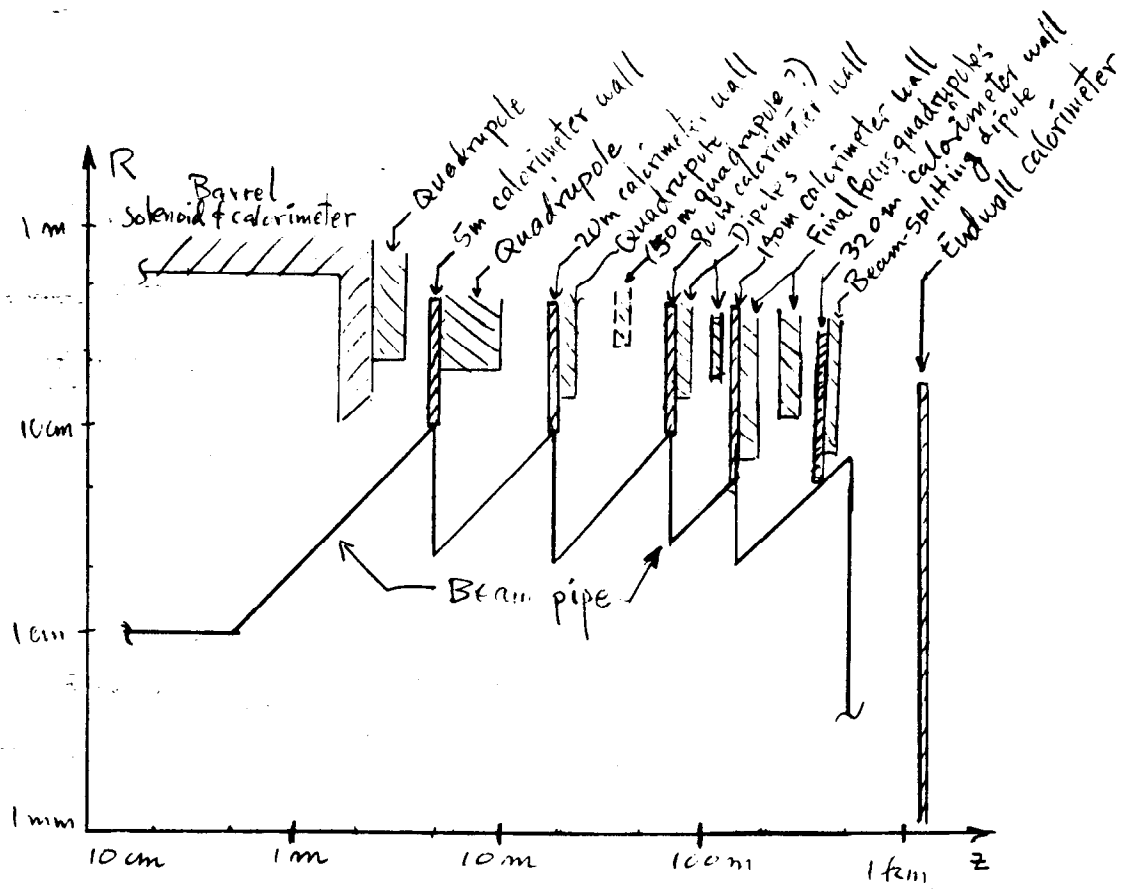 R
Barrel
Solenoid & calorimeter
Quadrupole
5m calorimeter wall
Quadripole
20m calorimeter wall
Quadrupute
(30m quadrupole?)
80m calorimeter wall
Dipoles
140m calorimeter wall
Final focus quadrupoles
320m calorimeter wall
Beam-splitting dipole
Endwall calorimeter
1 m
10cm
1 cm
1 mm
Beam pipe
10 cm
1 m
10 m
100m
1 km
z